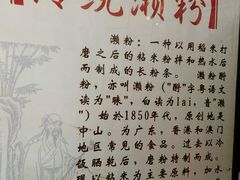 濑粉
濑粉：一种以用稻米打
磨之后的粘米粉拌和热水后
而制成的长粉条。濑粉酹
粉，亦叫濑粉（“酹”字粤语文
读为“睐”，白读为lai，音“濑”
）始於1850年代，原创地是
中山。为广东、香港和澳门
地区常见的食品。过去以冷
饭晒乾后，磨粉特制而成。
现以粘米为主要原料，加水